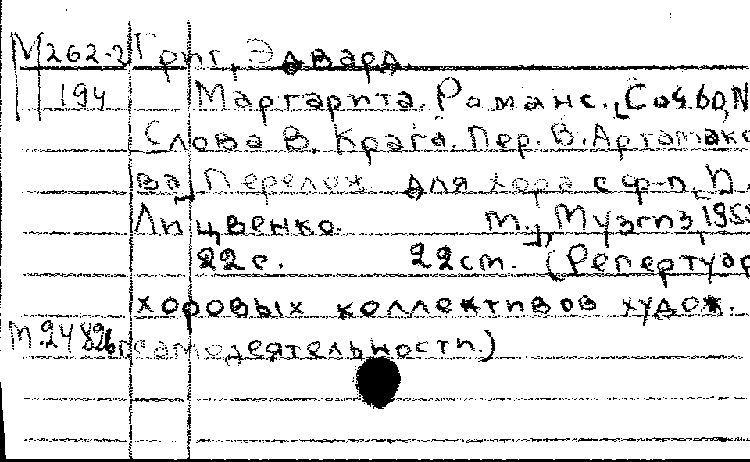 М262-2 Григ, Эдвард.
194 Маргарита. Романс. [Соч. 60, N
Слова В. Крага. Пер. В. Артамоно
ва] Перелож. для хора с ф-п. П.
Лицвенко. М., Музгиз, 195
22 с. 22 см. (Репертуар
хоровых коллективов худож.
самодеятельности.)